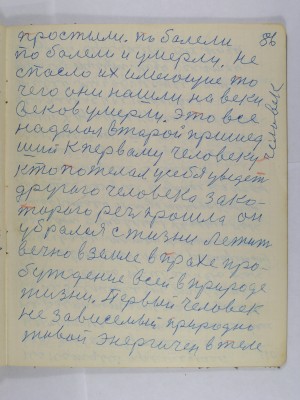 простыли. пъ болели 86
по болели и умерли. не
спасло их имеющие то
чего они нашли на веки
веков умерли. Это все
наделал второй пришед
ший к первому человеку человек
кто пожелал у себя увидет
другого человека за ко-
торого рег прошла он
убрался с жизни лежит
вечно в земле в прахе про-
буждение всей в природе
жизни. Первый человек
не зависемый природно
живой энергичен в теле